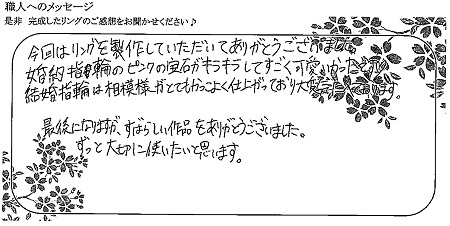 職人へのメッセージ
是非 完成したリングのご感想をお聞かせください♪
今回はリングを製作していただいてありがとうございました。
婚約指輪のピンクの宝石がキラキラしてすごく可愛かったです。
結婚指輪は相模様がとてもかっこよく仕上がっており大変
最後になりますが、すばらしい作品をありがとうございました。
ずっと大切に使いたいと思います。